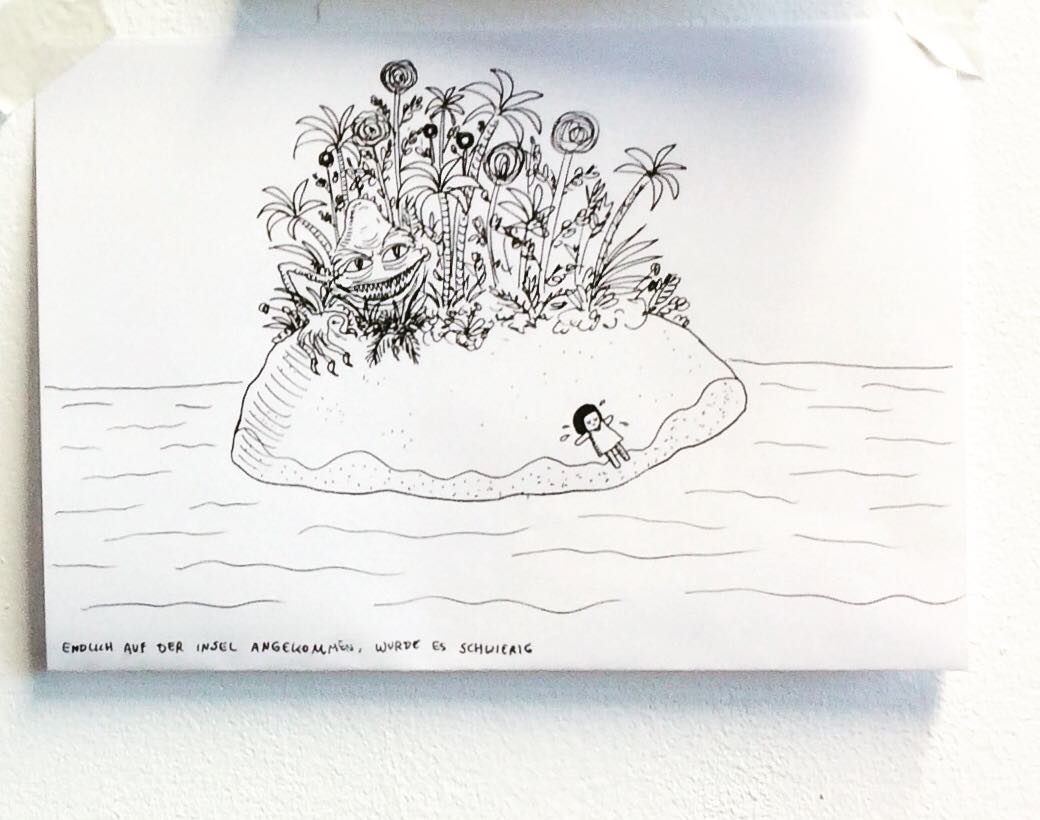 ENDLICH AUF DER INSEL ANGEKOMMEN, WURDE ES SCHWIERIG